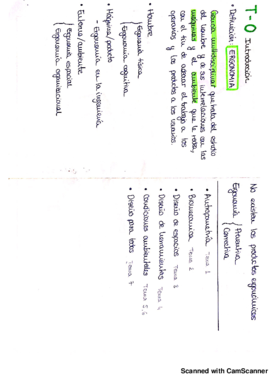 T-0 Introducción
• Definición ERGONOMÍA
Ciencia multidisciplinar que trata del estudio
del hombre y de sus interrelaciones con las
máquinas y el ambiente que le rodea,
con el fin de adecuar el trabajo a los
operarios y los productos a los usuarios.
• Hombre
Ergonomía física
Ergonomía cognitiva
• Máquina/producto
- Ergonomía en la ingeniería
• Entorno/ambiente
Ergonomía espacial
Ergonomía organizacional
No existen los productos ergonómicos
Ergonomía Preventiva
Correctiva
• Antropometría Tema 1
• Biomecánica Tema 2
• Diseño de espacios Tema
• Diseño de herramientas Tema 4
• Condiciones ambientales Tema 5,6
• Diseño para todos Tema 7
Scanned with CamScanner